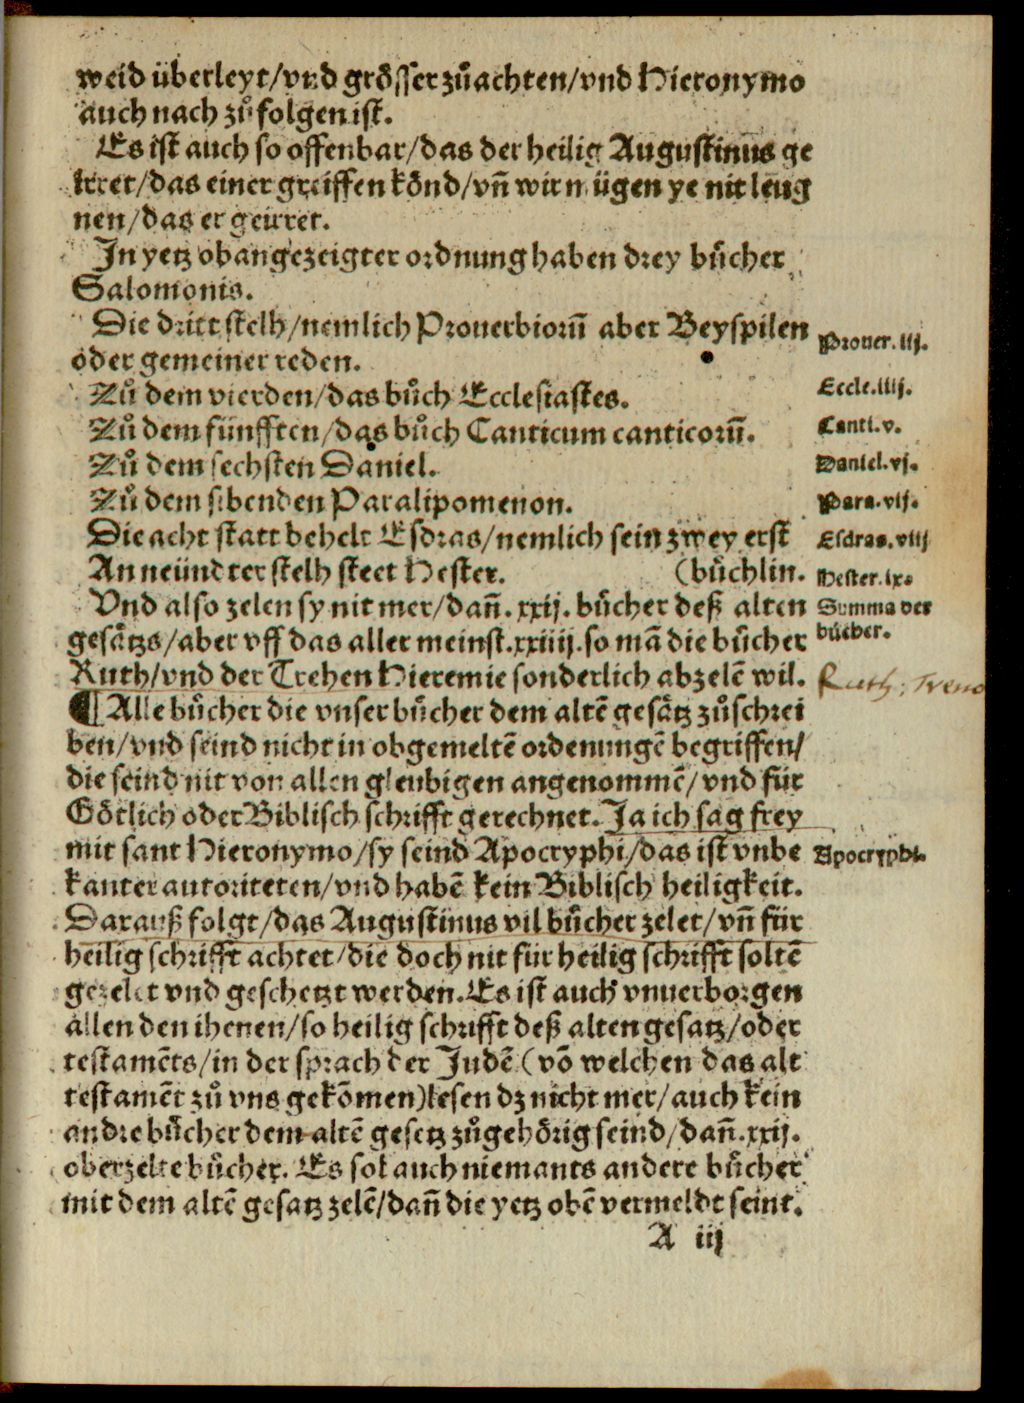 weid überleyt/vnd grösser zůachten/vnd Hieronymo
auch nach zů folgen ist.
Es ist auch so offenbar/das der heilig Augustinus ge
irret/das einer greiffen könd/vñ wir mügen ye nit leug
nen/das er geirret.
In yetz obangezeigter ordnung haben drey bůcher
Salomonis.
Die dritt stelh/nemlich Prouerbiorũ aber Beyspilen
oder gemeiner reden.
Prouer.iij.
Zů dem vierden/das bůch Ecclesiastes.
Eccle.iiij.
Zů dem fünfften/das bůch Canticum canticorũ.
Canti.v.
Zů dem sechsten Daniel.
Daniel.vj.
Zů dem sibenden Paralipomenon.
Para.vij.
Die acht statt behelt Esdras/nemlich sein zwey erst
Esdras.viij
An neündter stelh steet Hester. (bůchlin.
Hester.ix.
Vnd also zelen sy nit mer/dañ.xxij. bůcher deß alten
Summa der
gesåtzs/aber vff das aller meinst.xxiiij.so mã die bůcher
bůcher.
Ruth/vnd der Trehen Hieremie sonderlich abzelẽ wil.
Ruth; Treno
¶ Alle bůcher die vnser bůcher dem altẽ gesåtz zůschrei
ben/vnd seind nicht in obgemeltẽ ordenungẽ begriffen/
die seind nit von allen gleubigen angenommẽ/vnd für
Götlich oder Biblisch schrifft gerechnet. Ja ich sag frey
mit sant Hieronymo/sy seind Apocryphi/das ist vnbe
Apocryphi.
kanter autoriteten/vnd habẽ kein Biblisch heiligkeit.
Darauß folgt/das Augustinus vil bůcher zelet/vñ für
heilig schrifft achtet/die doch nit für heilig schrifft soltẽ
gezelet vnd geschetzt werden. Es ist auch vnuerborgen
allen den ihenen/so heilig schrifft deß alten gesatz/oder
testamẽts/in der sprach der Judẽ (võ welchen das alt
testamẽt zů vns gekõmen)lesen dz nicht mer/auch kein
andre bůcher dem altẽ gesetz zůgehörig seind/dañ.xxij.
oberzelte bůcher. Es sol auch niemants andere bůcher
mit dem altẽ gesatz zelẽ/dañ die yetz obẽ vermeldt seint.
A iij